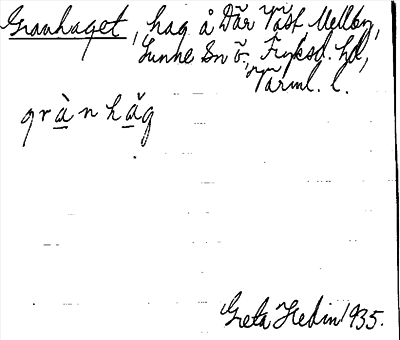 Granhaget, hag å Där Väst Mellby,
Sunne Sn ö., Fryksd. hd,
Värml. l.
grànhăg
Greta Hedin 1935.